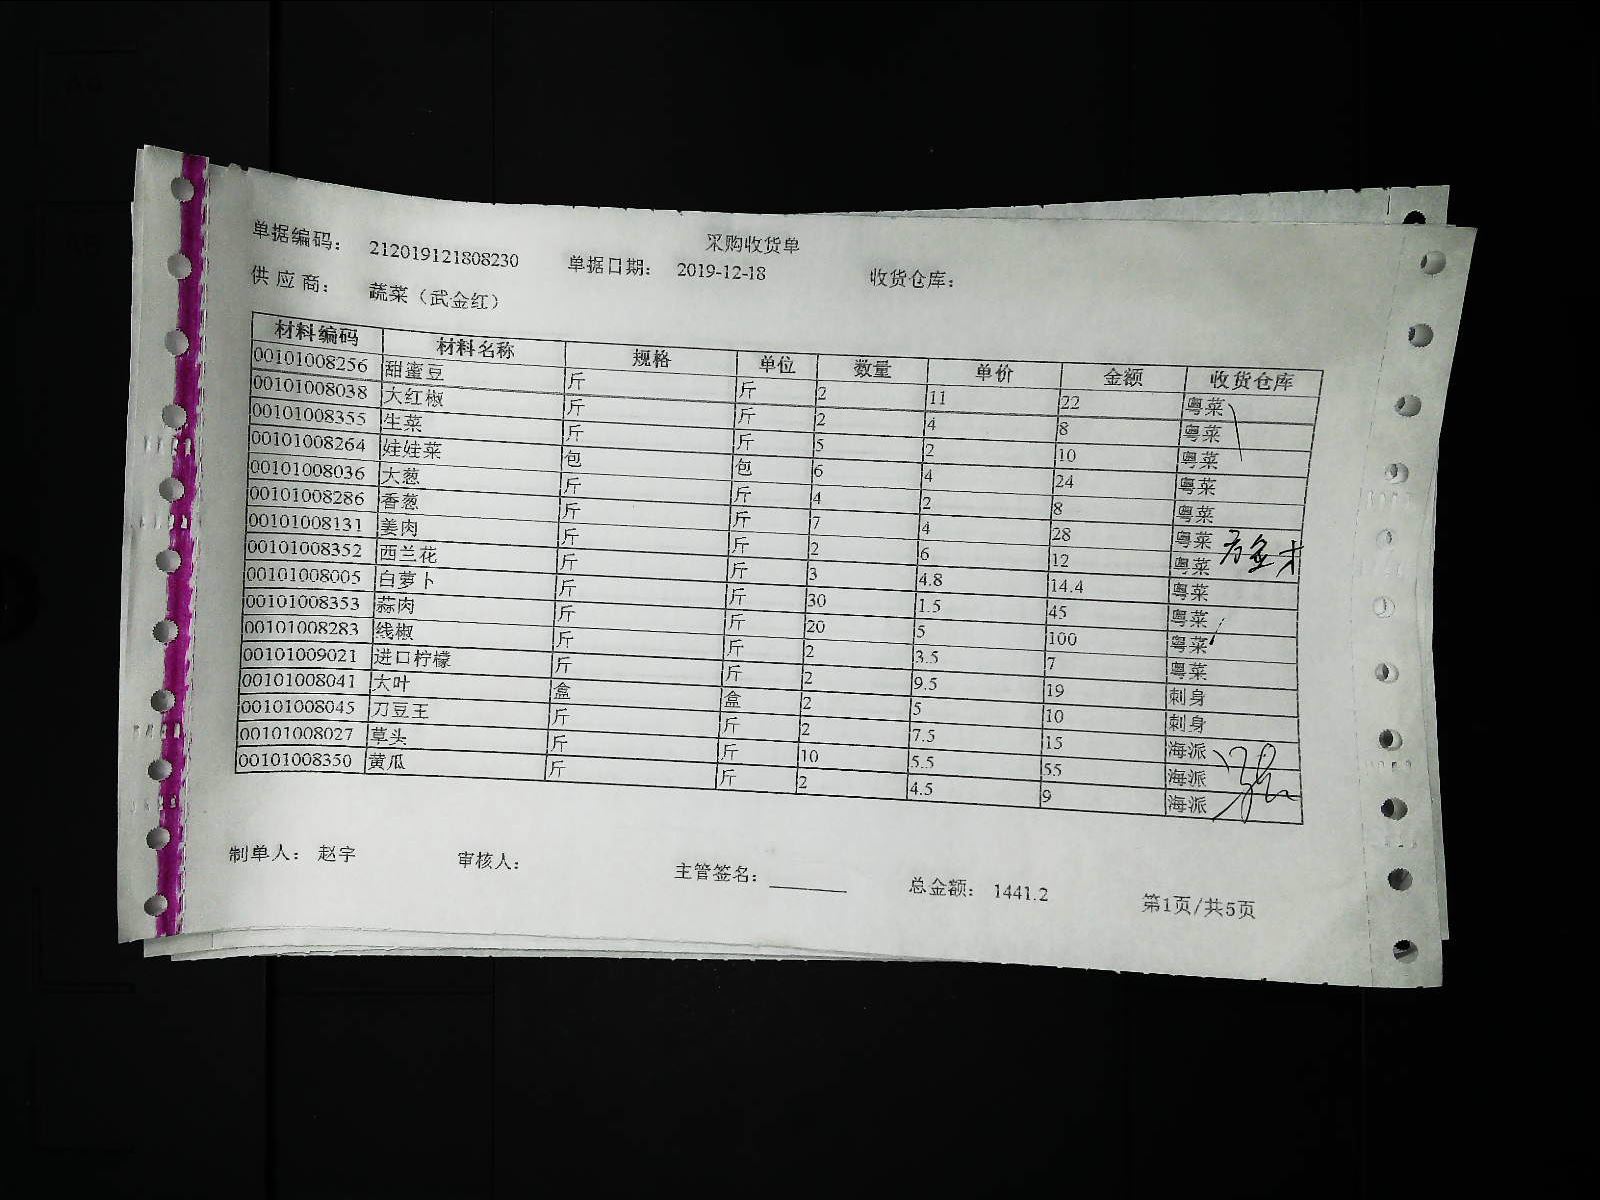 采购收货单
单据编码： 212019121808230 单据日期： 2019-12-18 收货仓库：
供 应 商： 蔬菜（武金红）
材料编码 材料名称 规格 单位 数量 单价 金额 收货仓库
00101008256 甜蜜豆 斤 斤 2 11 22 粤菜
00101008038 大红椒 斤 斤 2 4 8 粤菜
00101008355 生菜 斤 斤 5 2 10 粤菜
00101008264 娃娃菜 包 包 6 4 24 粤菜
00101008036 大葱 斤 斤 4 2 8 粤菜
00101008286 香葱 斤 斤 7 4 28 粤菜
00101008131 姜肉 斤 斤 2 6 12 粤菜
00101008352 西兰花 斤 斤 3 4.8 14.4 粤菜
00101008005 白萝卜 斤 斤 30 1.5 45 粤菜
00101008353 蒜肉 斤 斤 20 5 100 粤菜
00101008283 线椒 斤 斤 2 3.5 7 粤菜
00101009021 进口柠檬 斤 斤 2 9.5 19 刺身
00101008041 大叶 盒 盒 2 5 10 刺身
00101008045 刀豆王 斤 斤 2 7.5 15 海派
00101008027 草头 斤 斤 10 5.5 55 海派
00101008350 黄瓜 斤 斤 2 4.5 9 海派
制单人： 赵宇 审核人： 主管签名：________ 总金额： 1441.2 第1页/共5页